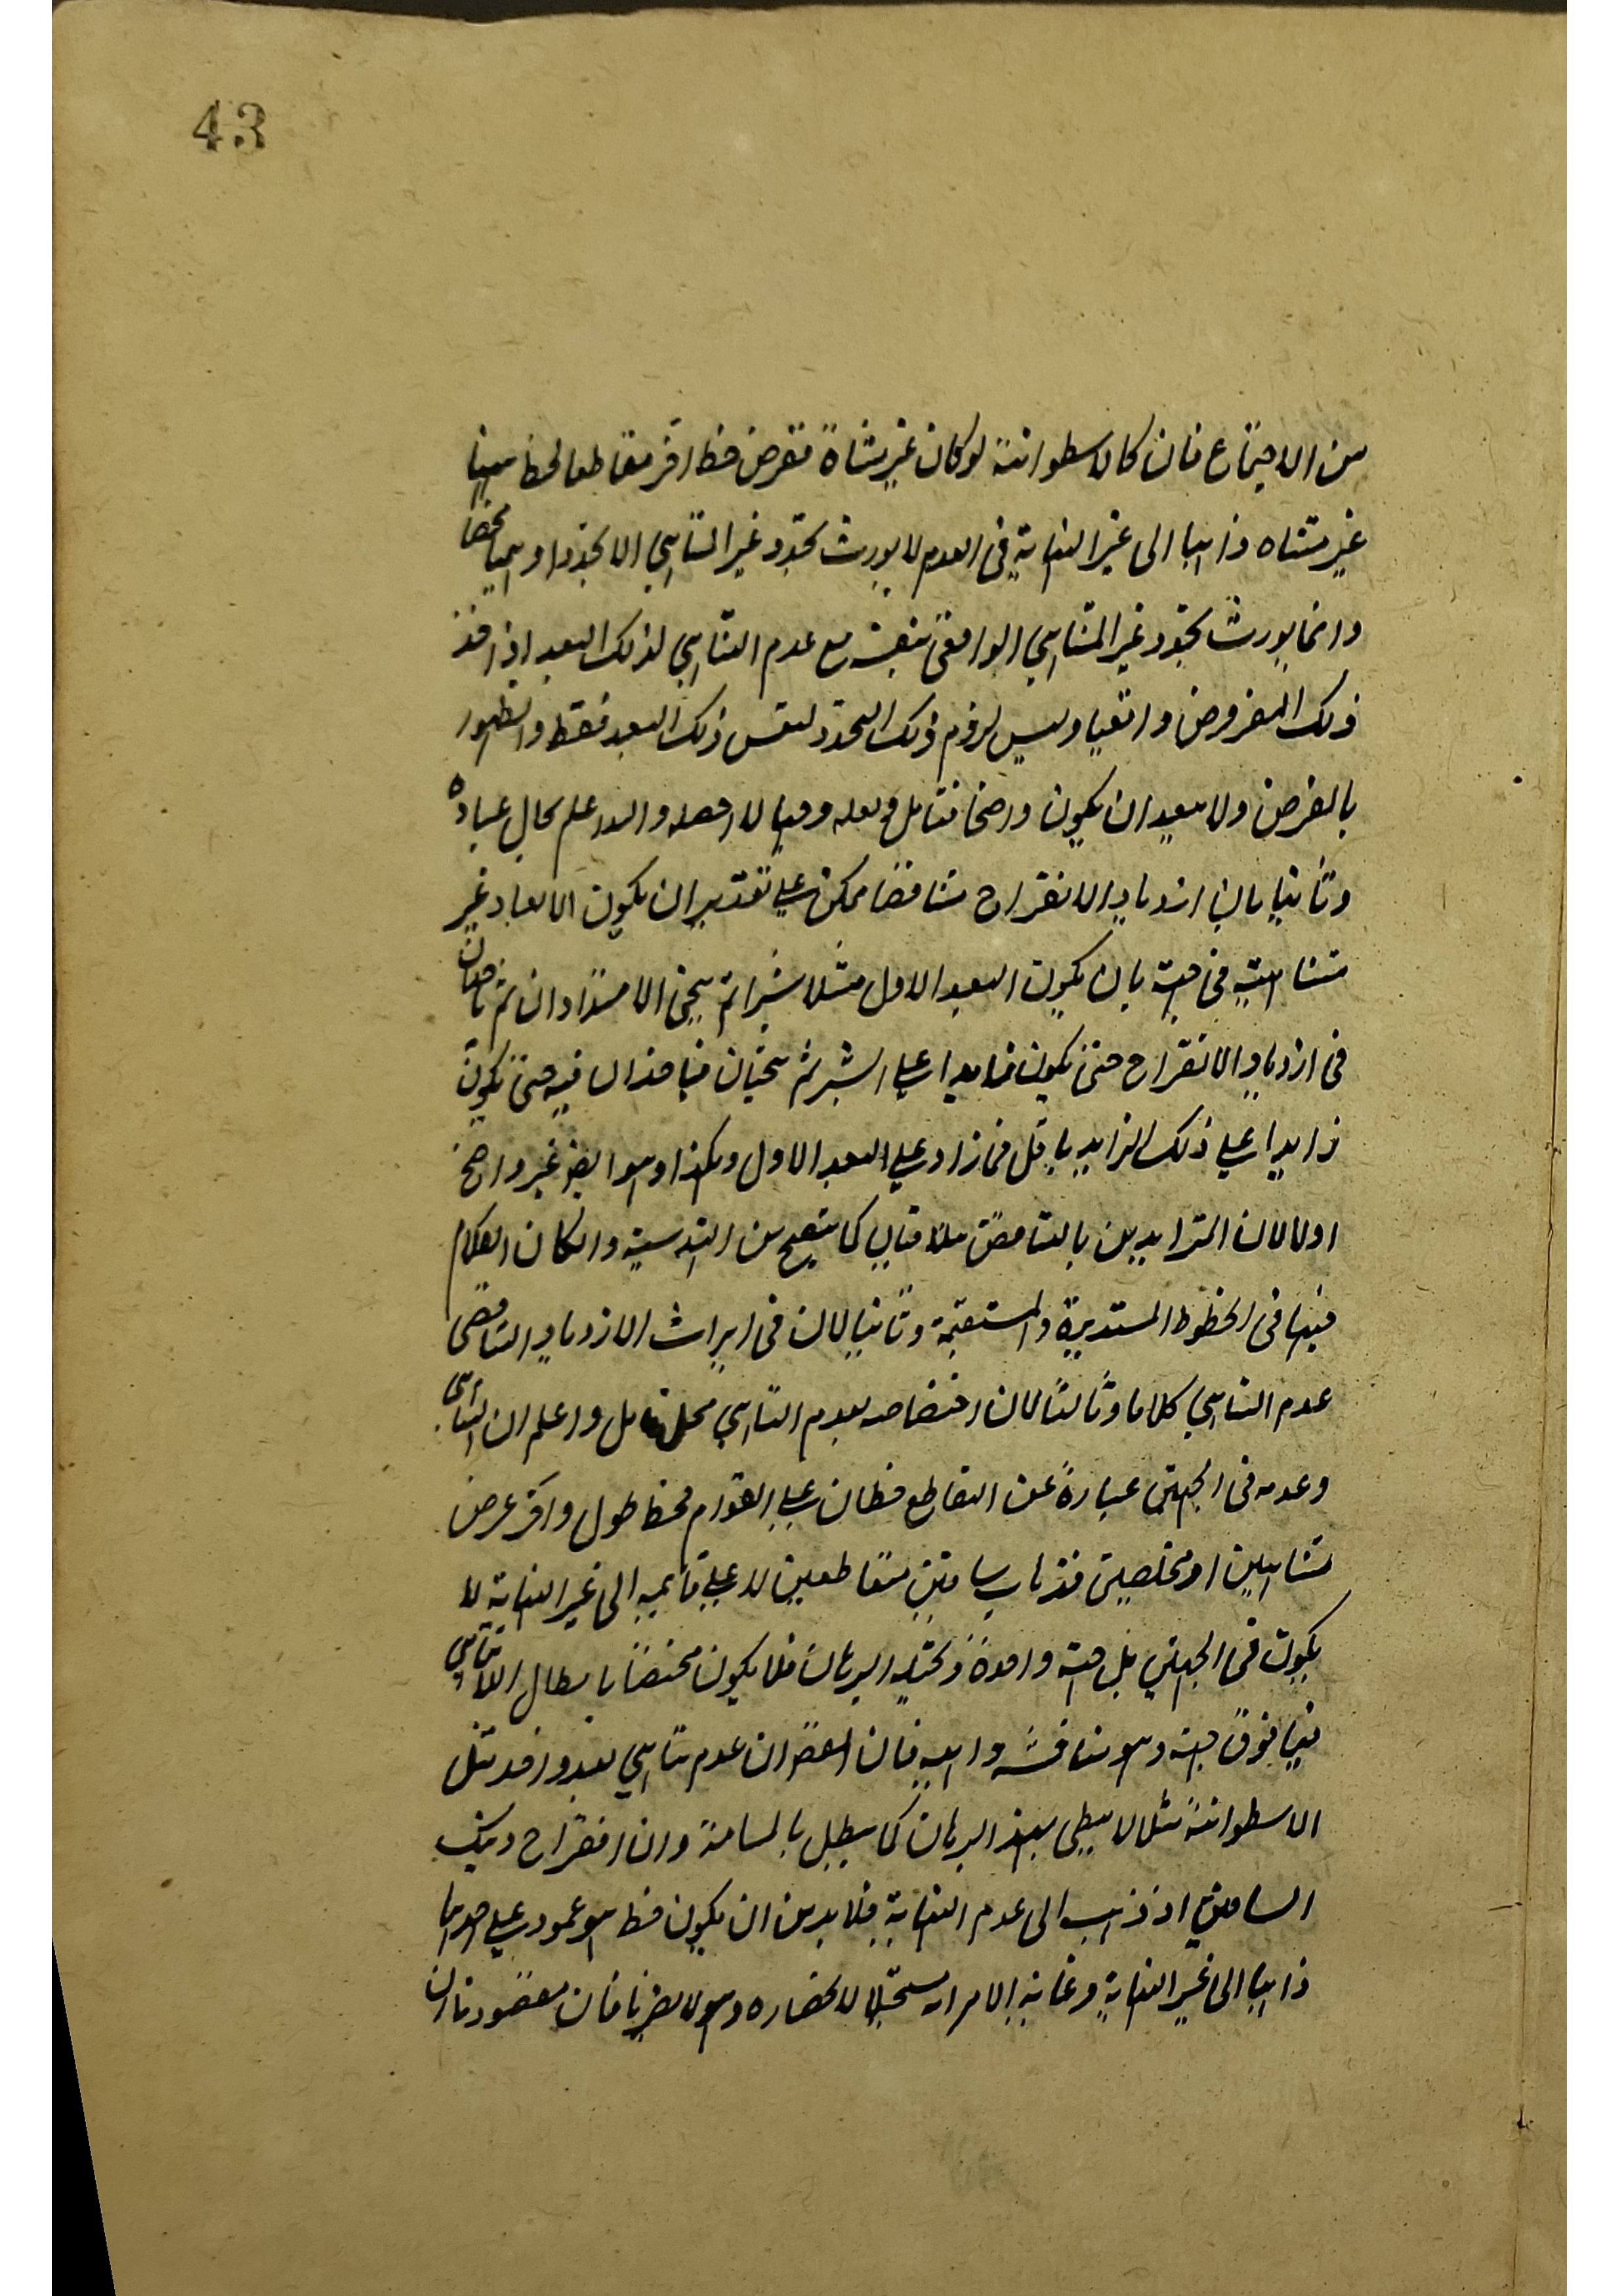 43
من الاجتماع فان كالاسطوانة لو كان غير متناه تفرض خطا اخر مقاطعا لخط
غير متناه ذاهبا الى غير النهاية فى العدم لا يورث تحدد غير التناهي الا تحددا وهميا محضا
وانما يورث تحدد غير المتناهي الواقعى نفسه مع عدم التناهي لذلك البعد اذا اخذ
ذلك المفروض واقعيا وليس لزوم ذلك التحدد لنفس ذلك البعد فقط والظهور
بالفرض ولا يبعد ان يكون واضحا فتامل ولعله والله اعلم بحال عباده
وثانيا بان ازدياد الانفراج متناقصا ممكن على تقدير ان يكون الابعاد غير
متناهية فى جهة بان يكون البعد الاول مثلا شبرا ثم يجئ الامتدادان ثم ياخذان
فى ازدياد الانفراج حتى يكون زايدا على الشبر ثم يجيان فياخذان فيه حتى يكون
زايدا على ذلك الزايد باقل مما زاد على البعد الاول وهكذا وهو ايضا غير واضح
اولا لان المتزايدين بالتناقص يتلاقيان كما يتضح من الهندسية وان كان الكلام
فيها فى الخطوط المستديرة والمستقيمة وثانيا لان فى ايراث الازدياد التناقصى
عدم التناهي كلاما وثالثا لان اختصاصه بعدم التناهي محل تامل واعلم ان التناهى
وعدمه فى الجهتين عبارة عن التقاطع خطان على القوام لخط طول واخر عرض
متناهيين او مختلفين فذهاب ساقين متقاطعين لا على قايمه الى غير النهاية لا
يكون فى الجهتين بل جهة واحدة وبحثه البرهان فلا يكون مختصا بابطال اللاتناهى
فيما فوق جهة وهو مناقشه واهيه فان الغرض ان عدم تناهي بعد واحد مثل
الاسطوانة مثلا لا يبطل بهذا البرهان كما يبطل بالمسامتة وان انفراج ذينك
الساقين اذ ذهب الى عدم النهاية فلا بد من ان يكون خط هو عمود على احدهما
ذاهبا الى غير النهاية وغاية الامر انه مستحيل لانحصاره وهو لا يضرنا فان مقصودنا ان